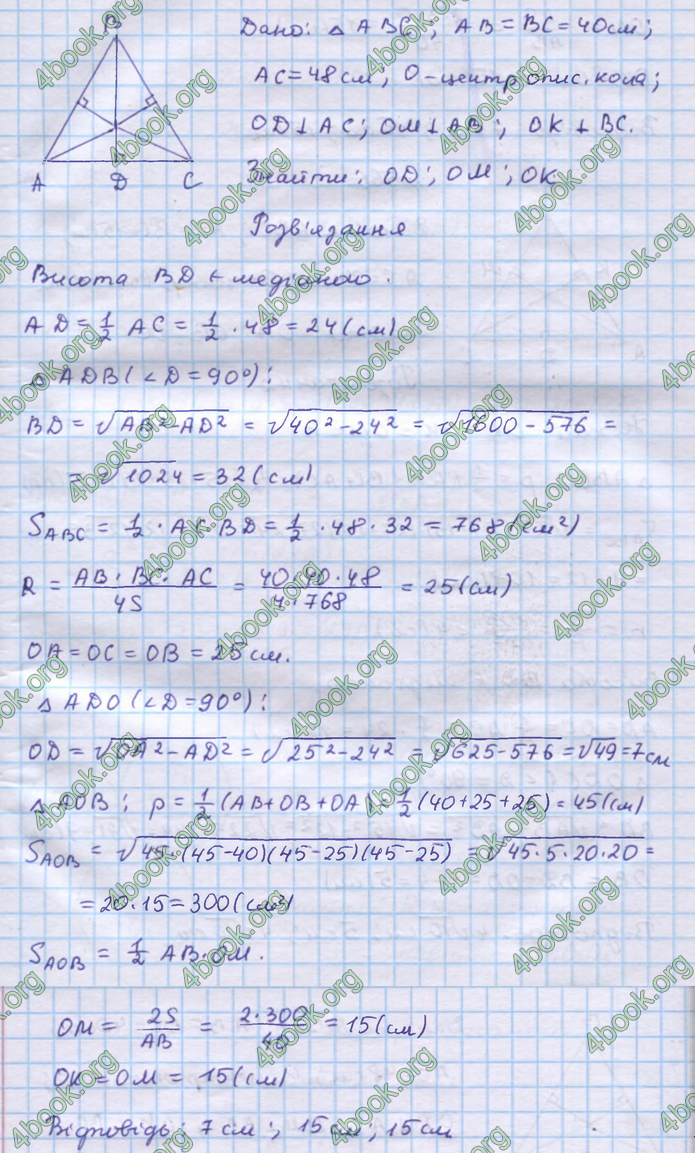 B
A D C
Дано: △ ABC; AB = BC = 40 см;
AC = 48 см; O - центр опис. кола;
OD ⊥ AC; OM ⊥ AB; OK ⊥ BC.
Знайти: OD; OM; OK
Розв'язання
Висота BD є медіаною.
AD = 1/2 AC = 1/2 · 48 = 24 (см)
△ ADB (∠D = 90°):
BD = √(AB² - AD²) = √(40² - 24²) = √(1600 - 576) =
= √1024 = 32 (см)
S_ABC = 1/2 · AC · BD = 1/2 · 48 · 32 = 768 (см²)
R = (AB · BC · AC)/(4S) = (40 · 40 · 48)/(4 · 768) = 25 (см)
OA = OC = OB = 25 см.
△ ADO (∠D = 90°):
OD = √(OA² - AD²) = √(25² - 24²) = √(625 - 576) = √49 = 7 см
△ AOB; p = 1/2 (AB + OB + OA) = 1/2 (40 + 25 + 25) = 45 (см)
S_AOB = √(45 · (45 - 40)(45 - 25)(45 - 25)) = √(45 · 5 · 20 · 20) =
= 20 · 15 = 300 (см²)
S_AOB = 1/2 AB · OM.
OM = 2S/AB = (2 · 300)/40 = 15 (см)
OK = OM = 15 (см)
Відповідь: 7 см; 15 см; 15 см
4book.org